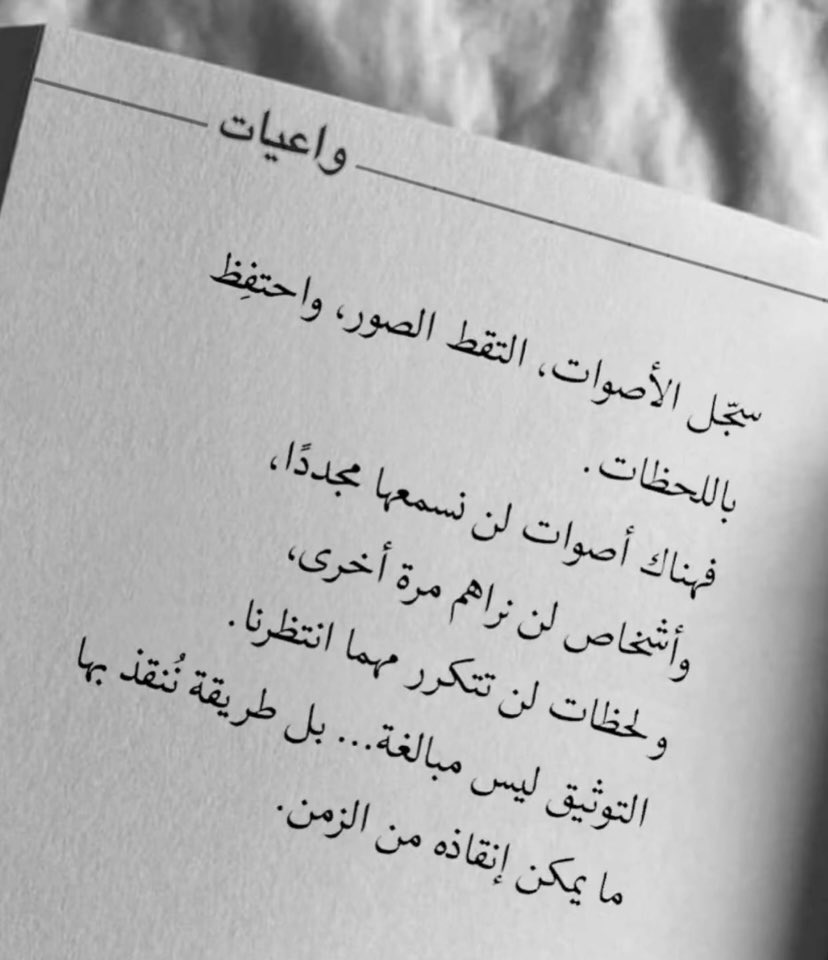 واعيات
سجّل الأصوات، التقط الصور، واحتفِظ
باللحظات.
فهناك أصوات لن نسمعها مجددًا،
وأشخاص لن نراهم مرة أخرى،
ولحظات لن تتكرر مهما انتظرنا.
التوثيق ليس مبالغة... بل طريقة نُنقذ بها
ما يمكن إنقاذه من الزمن.